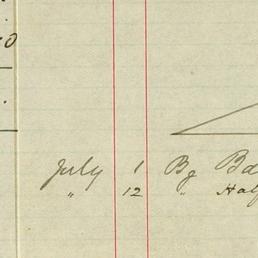 July 1 By Ba
" 12 " Half